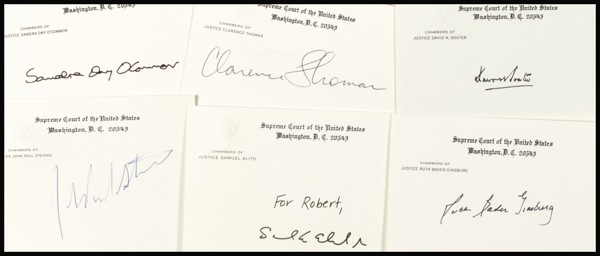 Supreme Court of the United States
Washington, D. C. 20543
CHAMBERS OF
JUSTICE SANDRA DAY O'CONNOR
Sandra Day O'Connor
Supreme Court of the United States
Washington, D. C. 20543
CHAMBERS OF
JUSTICE CLARENCE THOMAS
Clarence Thomas
Supreme Court of the United States
Washington, D. C. 20543
CHAMBERS OF
JUSTICE DAVID H. SOUTER
David Souter
Supreme Court of the United States
Washington, D. C. 20543
CHAMBERS OF
JOHN PAUL STEVENS
Supreme Court of the United States
Washington, D. C. 20543
CHAMBERS OF
JUSTICE SAMUEL ALITO
For Robert,
Supreme Court of the United States
Washington, D. C. 20543
CHAMBERS OF
JUSTICE RUTH BADER GINSBURG
Ruth Bader Ginsburg